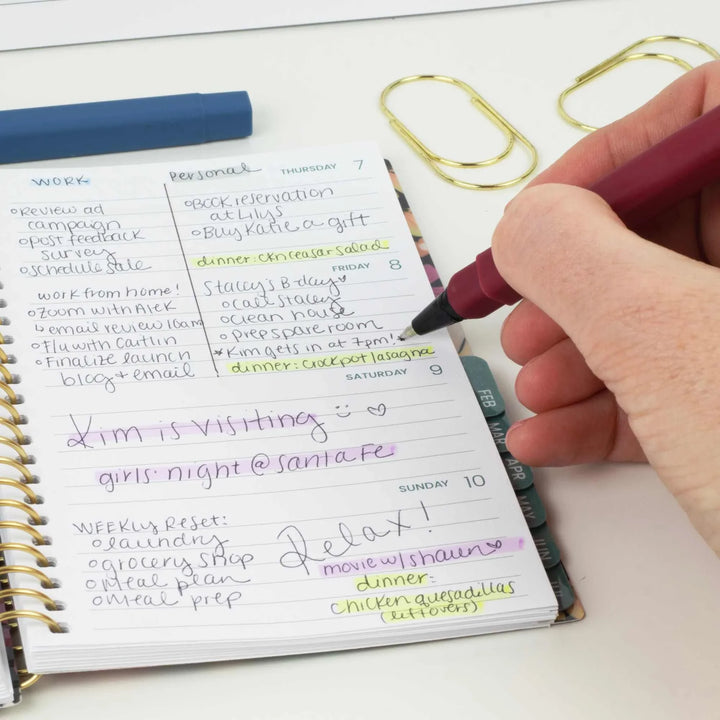 WORK
Personal
THURSDAY 7
o Review ad
campaign
o post feedback
survey
o schedule sale
o Book reservation
at Lilys
o Buy Katie a gift
dinner: ckn ceasar salad
FRIDAY 8
work from home!
o Zoom with Alek
↳ email review 10am
o F/u with Caitlin
o Finalize launch
blog + email
Stacey's B-day ♡
o call stacey
o clean house
o prep spare room
*Kim gets in at 7pm!*
dinner: crockpot lasagna
SATURDAY 9
Kim is visiting :) ♡
girls' night @ santa Fe
SUNDAY 10
WEEKLY Reset:
o laundry
o grocery shop
o Meal plan
o Meal prep
Relax!
movie w/ shaun ♡
dinner:
chicken quesadillas
(leftovers)
FEB
MAR
APR
MAY
JUN